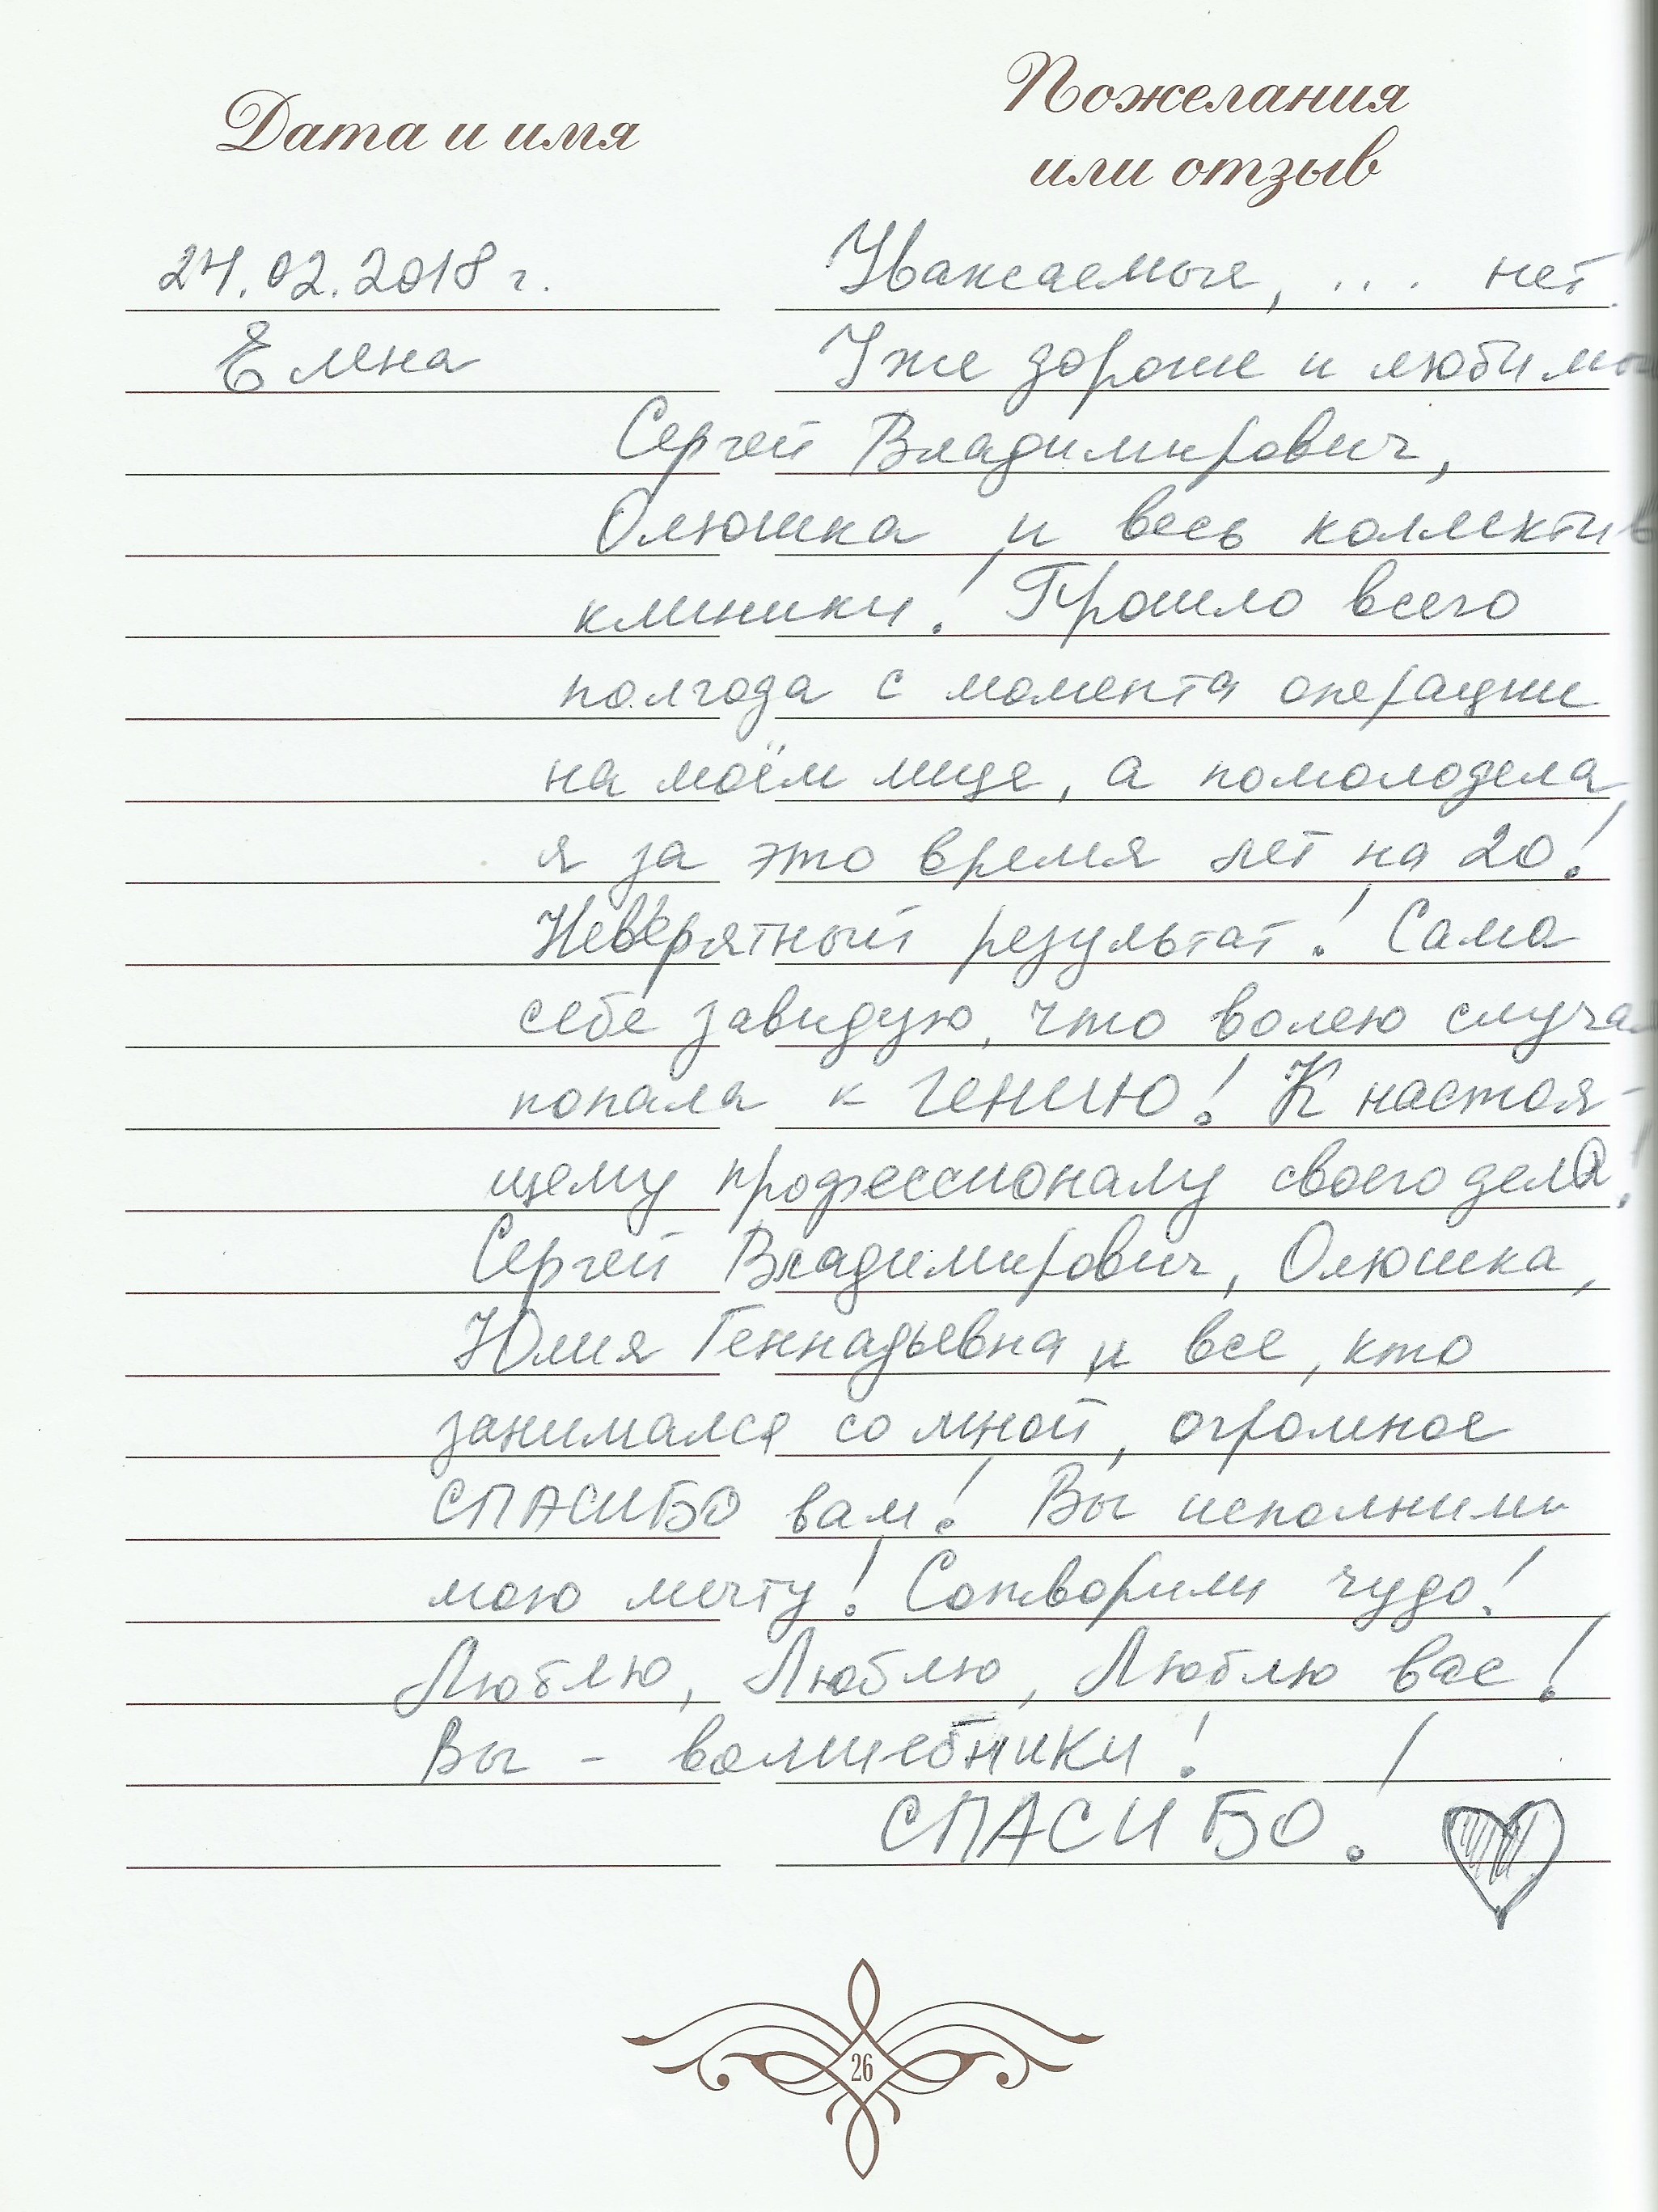 Дата и имя
Пожелания
или отзыв
24.02.2018 г.
Уважаемые, ... нет!
Елена
Уже дорогие и любимые
Сергей Владимирович,
Олюшка и весь коллектив
клиники! Прошло всего
полгода с момента операции
на моём лице, а помолодела
я за это время лет на 20!
Невероятный результат! Сама
себе завидую, что волею случая
попала к ГЕНИЮ! К настоя-
щему профессионалу своего дела!
Сергей Владимирович, Олюшка,
Юлия Геннадьевна и все, кто
занимался со мной, огромное
СПАСИБО вам! Вы исполнили
мою мечту! Сотворили чудо!
Люблю, Люблю, Люблю вас!
Вы - волшебники!
СПАСИБО!
26